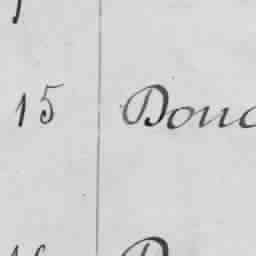 15 Douc